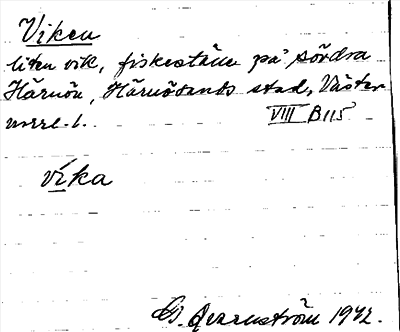 Viken
liten vik, fiskeställe på södra
Härnön, Härnösands stad, Väster-
norrl. l.
VIII B115
vi̍ka
B. Qvarnström 1972.